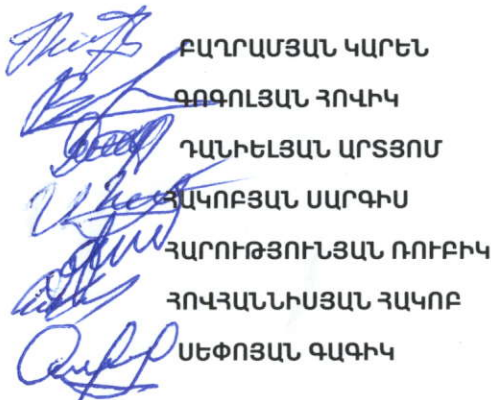 ԲԱՂՐԱՄՅԱՆ ԿԱՐԵՆ
ԳՈԳՈԼՅԱՆ ՀՈՎԻԿ
ԴԱՆԻԵԼՅԱՆ ԱՐՏՅՈՄ
ՀԱԿՈԲՅԱՆ ՍԱՐԳԻՍ
ՀԱՐՈՒԹՅՈՒՆՅԱՆ ՌՈՒԲԻԿ
ՀՈՎՀԱՆՆԻՍՅԱՆ ՀԱԿՈԲ
ՍԵՓՈՅԱՆ ԳԱԳԻԿ